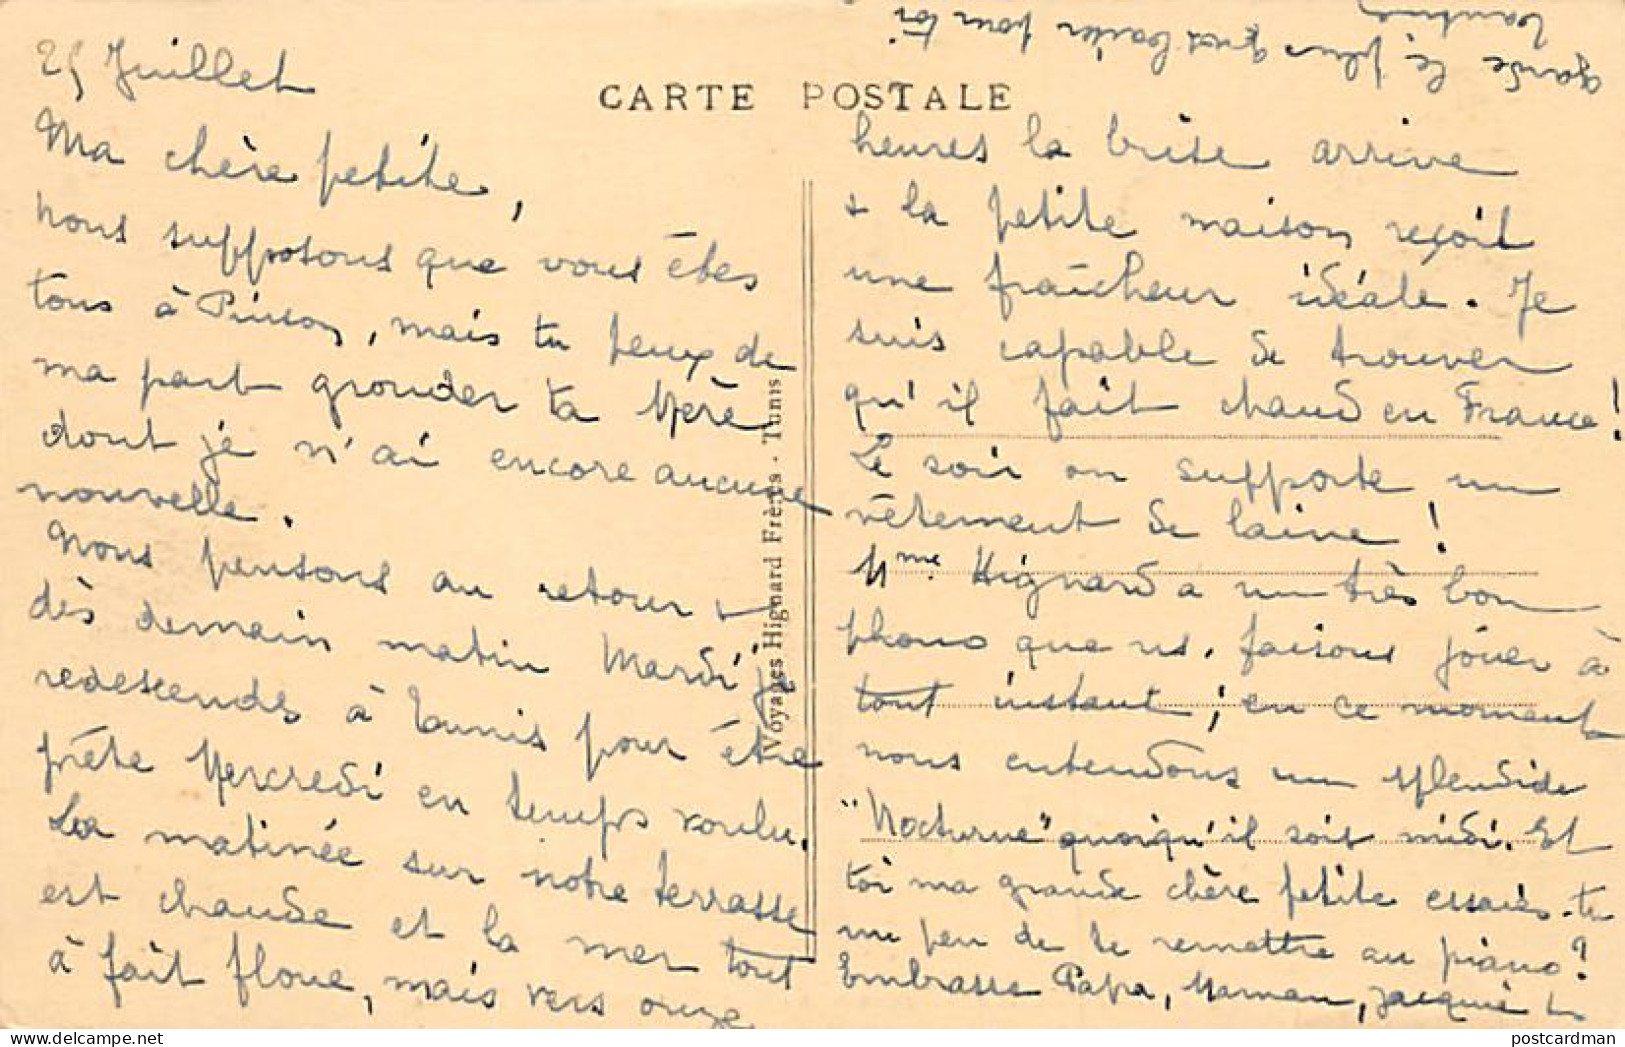 25 Juillet
Ma chère petite,
nous supposons que vous êtes
tous à, mais tu peux de
ma part gronder ta Mère
dont je n'ai encore aucune
nouvelle.
Nous pensons au retour &
dès demain matin Mardi je
redescends à Tunis pour être
prête Mercredi en temps voulu.
La matinée sur notre terrasse
est chaude et la mer tout
à fait floue, mais vers onze
CARTE POSTALE
Voyages Hignard Frères - Tunis
heures la brise arrive
& la petite maison reçoit
une fraîcheur idéale. Je
suis capable de trouver
qu'il fait chaud en France !
Le soir on supporte un
vêtement de laine !
Mme Hignard a un très bon
phono que ns. faisons jouer à
tout instant ; en ce moment
nous entendons un splendide
"Nocturne" quoiqu'il soit midi. Et
toi ma grande chère petite essaies-tu
un peu de te remettre au piano ?
Embrasse Papa, Maman, Jacquie &
garde le plus gros baiser pour toi
postcardman